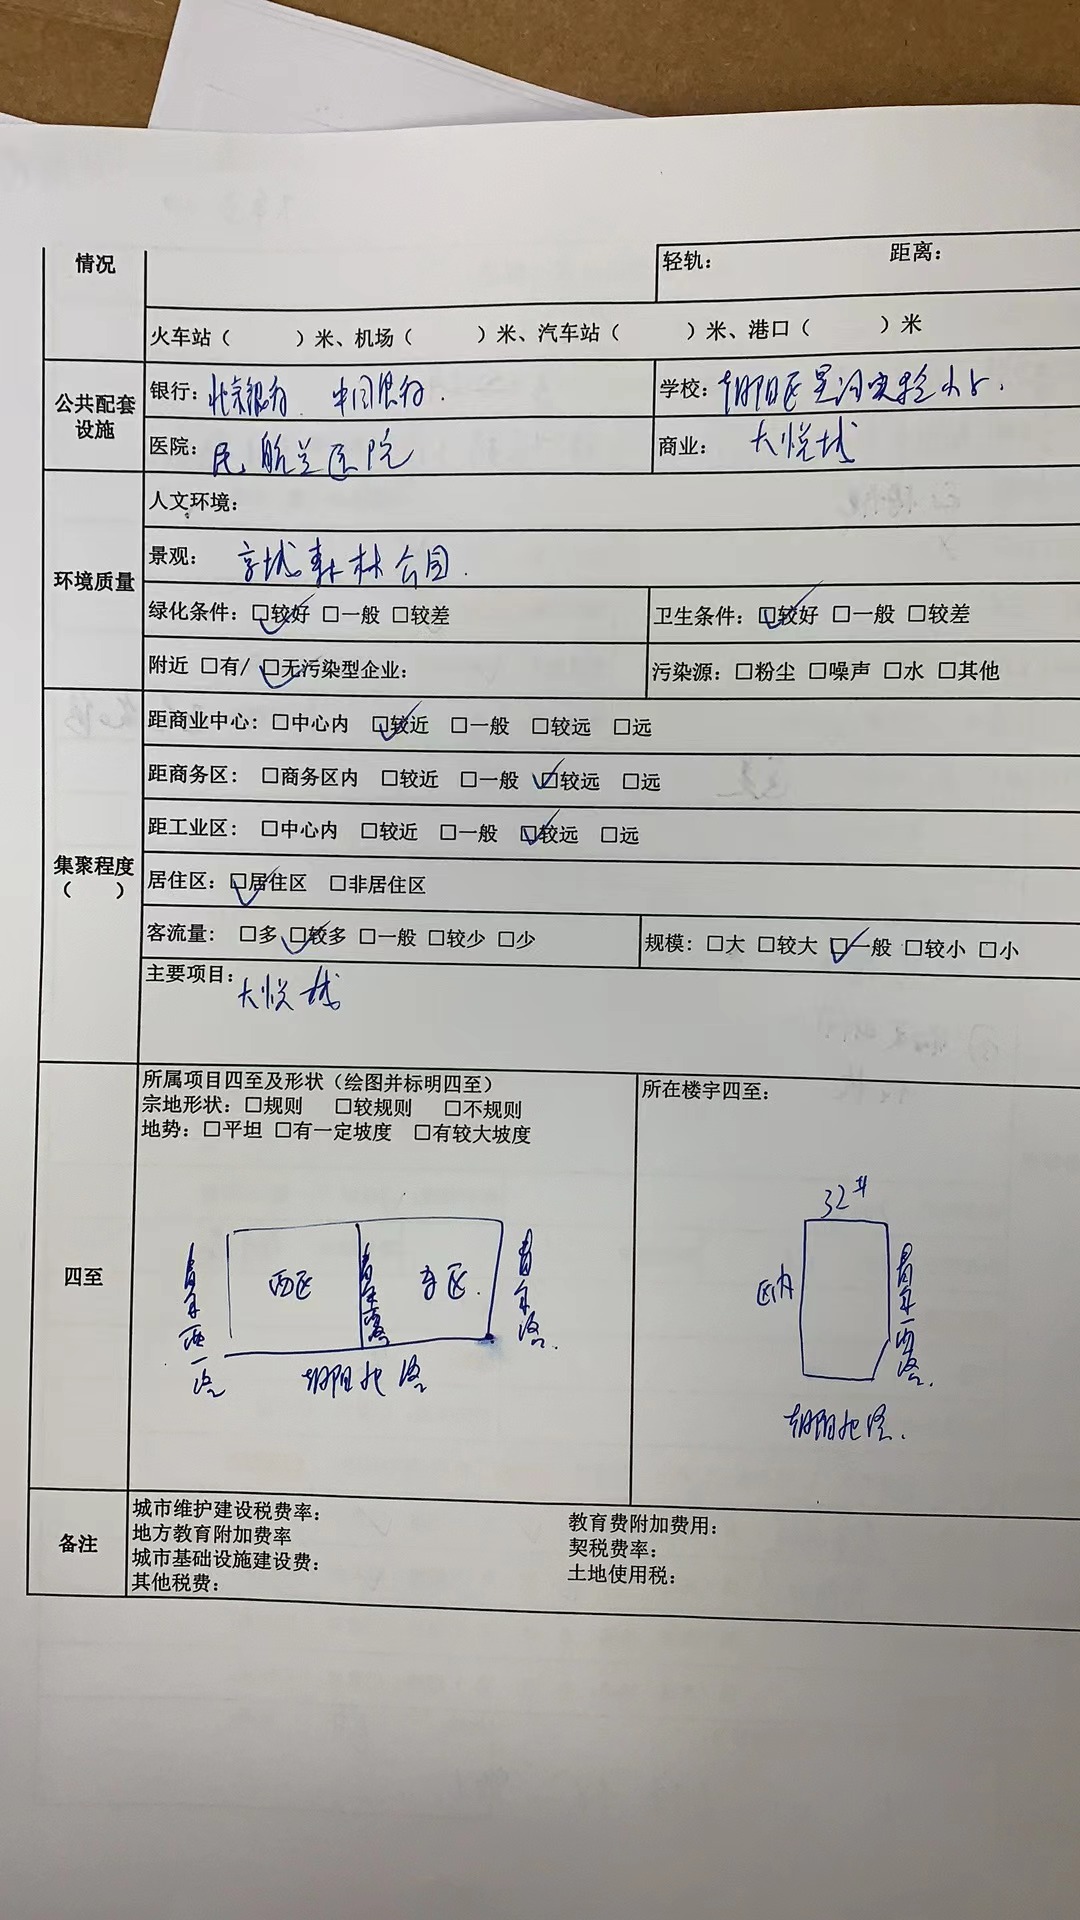 情况
轻轨： 距离：
火车站（ ）米、机场（ ）米、汽车站（ ）米、港口（ ）米
公共配套设施
银行：北京银行 中国银行.
学校：朝阳区星河实验小学.
医院：民航总医院
商业：大悦城
环境质量
人文环境：
景观：京城森林公园.
绿化条件：☑较好 □一般 □较差
卫生条件：☑较好 □一般 □较差
附近 □有/ ☑无污染型企业：
污染源：□粉尘 □噪声 □水 □其他
集聚程度
（ ）
距商业中心：□中心内 ☑较近 □一般 □较远 □远
距商务区：□商务区内 □较近 □一般 ☑较远 □远
距工业区：□中心内 □较近 □一般 ☑较远 □远
居住区：☑居住区 □非居住区
客流量：□多 ☑较多 □一般 □较少 □少
规模：□大 □较大 ☑一般 □较小 □小
主要项目：大悦城
四至
所属项目四至及形状（绘图并标明四至）
宗地形状：□规则 □较规则 □不规则
地势：□平坦 □有一定坡度 □有较大坡度
青年西一路
西区
青年路
东区.
青年路.
朝阳北路
所在楼宇四至：
32#
区内
青年一路.
朝阳北路.
备注
城市维护建设税费率：
地方教育附加费率
城市基础设施建设费：
其他税费：
教育费附加费用：
契税费率：
土地使用税：